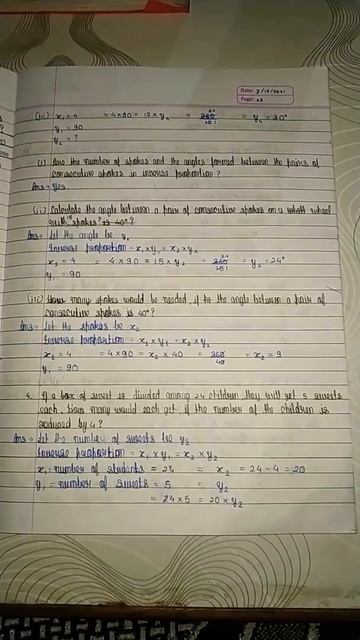 Date: 7/12/2021
Page: 23
(iii) x₁ = 4 = 4×90 = 12×y₄ = 360 = y₄ = 30°
y₁ = 90
y₄ = ?
(i) Are the number of spokes and the angles formed between the pairs of
consecutive spokes in inverse proportion?
Ans → Yes.
(ii) Calculate the angle between a pair of consecutive spokes on a wheel
with 15 spokes
Ans → Let the angle be y₂
Inverse proportion = x₁y₁ = x₂y₂
x₁ = 4 = 4×90 = 15×y₂ = 360 = y₂ = 24°
y₁ = 90
(iii) How many spokes would be needed, if the angle between a pair of
consecutive spokes is 40°?
Ans → Let the spokes be x₂
Inverse proportion = x₁y₁ = x₂y₂
x₁ = 4 = 4×90 = x₂×40 = 360/40 = x₂ = 9
y₁ = 90
4. If a box of sweet is divided among 24 children they will get 5 sweets
each. How many would each get, if the number of the children is
reduced by 4?
Ans → Let the number of sweets be y₂
Inverse proportion = x₁y₁ = x₂y₂
x₁ = number of students = 24 = x₂ = 24-4 = 20
y₁ = number of sweets = 5 = y₂
= 24×5 = 20×y₂